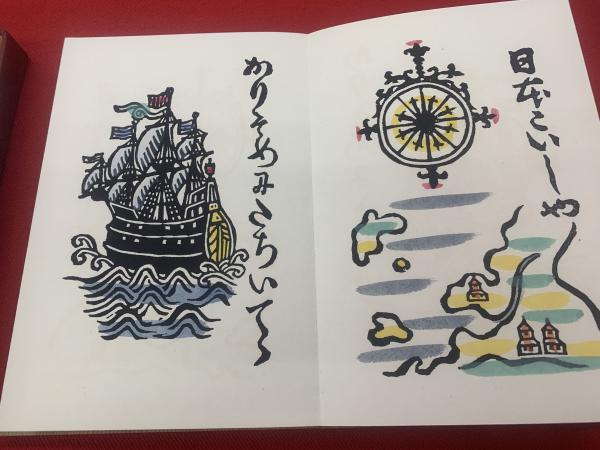 日本こいしや
かりそめにたちいてゝ